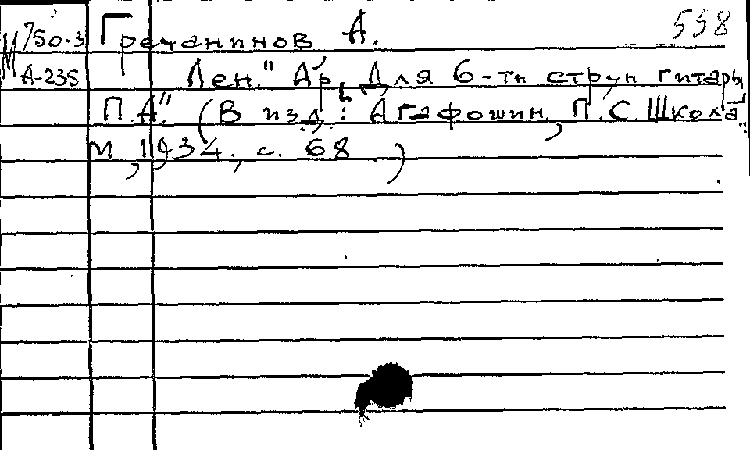 М 750-3 Гречанинов А. 558
А-235 Лен." Ар. Для 6-ти струн гитары
П.А." (В изд.: Агафошин, П.С. Школа"
М, 1934., с. 68)